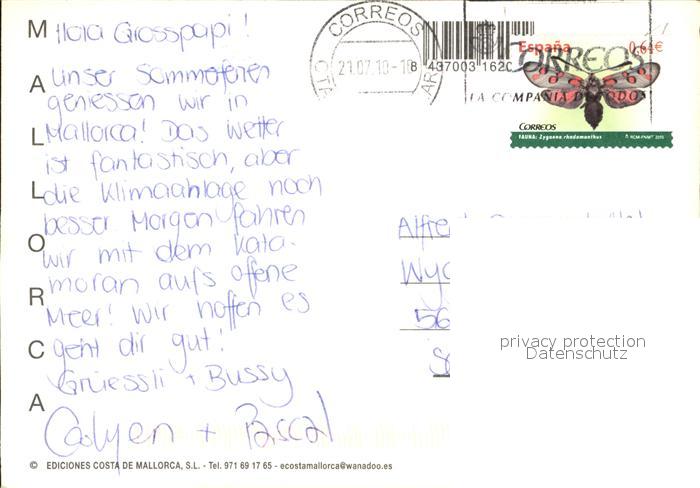 MALLORCA
Hola Grosspapi!
Unser Sommerferien
geniessen wir in
Mallorca! Das Wetter
ist fantastisch, aber
die Klimaanlage noch
besser. Morgen fahren
wir mit dem Kata-
moran aufs offene
Meer! Wir hoffen es
geht dir gut!
Grüessli + Bussy
+ Pascal
© EDICIONES COSTA DE MALLORCA, S.L. - Tel. 971 69 17 65 - ecostamallorca@wanadoo.es
CORREOS
21.07.10-18
437003 1620
España 0,64€
CORREOS
LA COMPAÑIA DE TODOS
CORREOS
FAUNA: Zygaena rhadamanthus
RCM-FNMT 2010
Alfre
56
privacy protection
Datenschutz